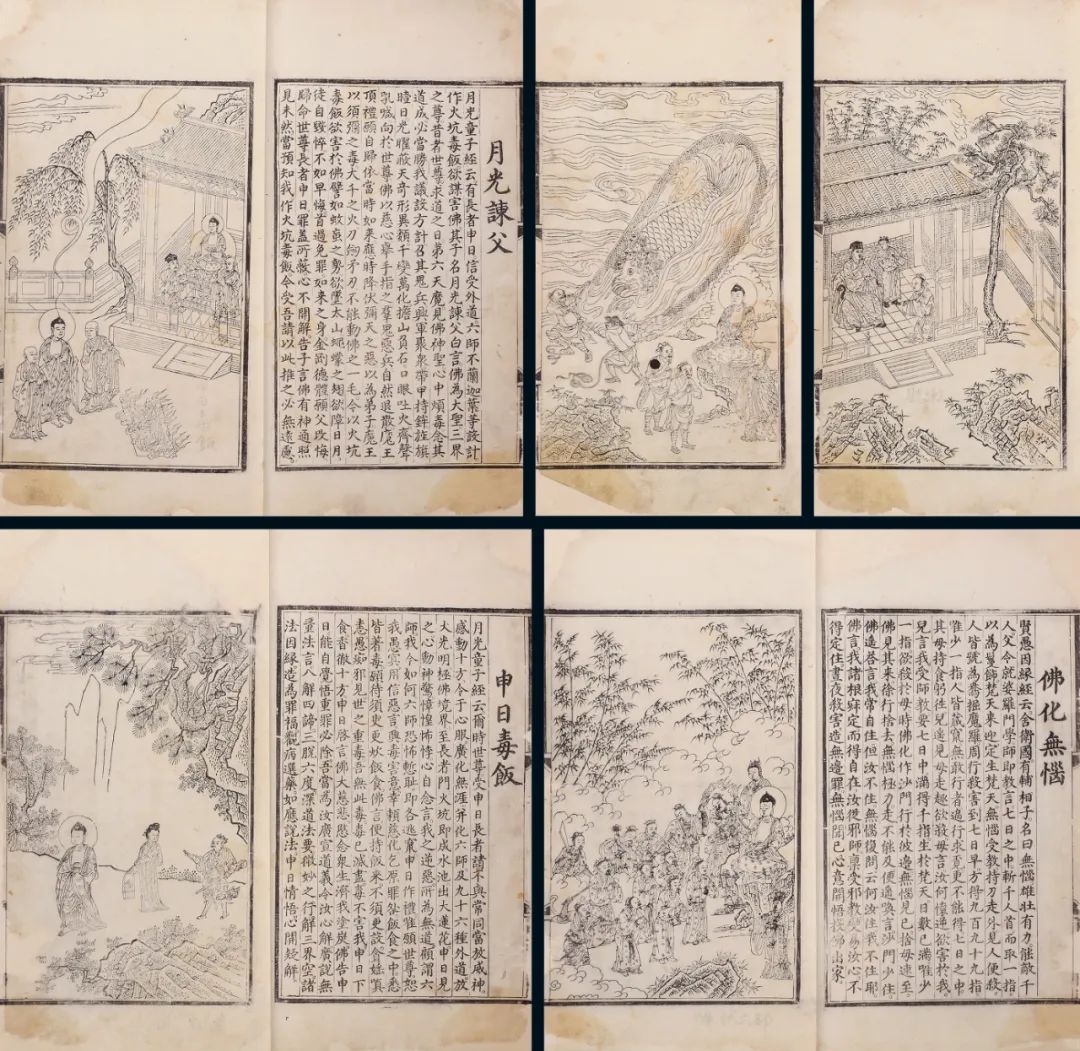 月光諫父
月光童子經云有長者申日信受外道六師不蘭迦葉等設計
作火坑毒飯欲謀害佛其子名月光諫父白言佛為大聖三界
之尊昔者世尊求道之日第六天魔見佛神聖心中煩毒念其
道成必當勝我議設方計召其鬼兵興軍聚眾帶甲持鉾旌旗
曀日光曜蔽天奇形異類千變萬化擔山負石口眼吐火齊聲
吼喊向於世尊佛以慈心舉手指之群惡鬼兵自然退散魔王
頂禮願自歸依當時如來應時降伏彌天之惡以為弟子魔王
以須彌之毒大千之火刀劍矛刃不能動佛之一毛今以火坑
毒飯欲害於佛譬如蚊䖟之勢欲墜太山蠅蠓之翅欲障日月
徒自毀悴不如早悔首過免罪如來之身金剛德體願父改悔
歸命世尊長者申日罪蓋所蔽心不開解告子言佛有神通照
見未然當預知我作火坑毒飯令受吾請以此推之必無遠慮
申日毒飯
月光童子經云爾時世尊受申日長者請不與常同當放威神
感動十方令于心眼廣化無涯并化六師及九十六種外道放
大光明極佛境界至長者門火坑即成水池出大蓮花申日見
之心動神驚惶怖悸心自念言我之逆惡所為無道顧謂六
師我今如何六師恐怖慙恥即各逃竄申日作禮惟願世尊恕
我愚冥用信惡言興毒害意幸賴慈化乞原罪咎飯食之中悉
皆著毒願待須更更炊飯食佛言便持飯來不須更設食婬嗔
恚愚痴邪見世之重毒吾無此毒毒已滅盡毒不害我申日下
食香徹十方申日啓言佛大慈悲愍念眾生濟我塗炭佛告申
日能自覺悟重罪必除吾當為汝廣宣道義令汝心解廣說無
量法言八解四諦三脫六度深道法要微妙之行解三界空諸
法因緣造為罪福觀病選藥如應說法申日情悟心開疑解
佛化無惱
賢愚因緣經云舍衛國有輔相子名曰無惱雄壯有力能敵千
人父令就婆羅門學師即教言七日之中斬千人首而取一指
以為鬘飾梵天來迎定生梵天無惱受教持刀走外見人便殺
人皆號為鴦掘魔羅周行殺害到七日早方得九百九十九指
唯少一指人皆藏竄無敢行者遍行求覓更不能得七日之中
其母持食躬往兒邊遙見母走趣欲殺母言汝何懷逆欲害於我
兒言我受師教要七日中滿得千指生於梵天日數已滿唯少
一指欲殺於母時佛化作沙門行於彼邊無惱見已捨母速至
佛見其來徐行捨去無惱極力走不能及便遙喚言沙門少住
佛遙答言我常自住但汝不住無惱復問云何汝住我不住耶
佛言我諸根寂定而得自在汝從邪師稟受邪教變易汝心不
得定住晝夜殺害造無邊罪無惱聞已心意開悟投佛出家